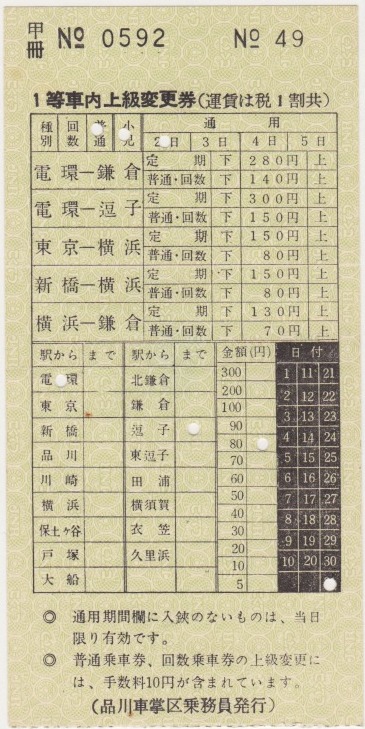 甲冊 № 0592 № 49
1等車内上級変更券(運賃は税1割共)
種別 回数 普通 小児 通用
2日 3日 4日 5日
電環―鎌倉 定期 下 280円 上
普通・回数 下 140円 上
電環―逗子 定期 下 300円 上
普通・回数 下 150円 上
東京―横浜 定期 下 150円 上
普通・回数 下 80円 上
新橋―横浜 定期 下 150円 上
普通・回数 下 80円 上
横浜―鎌倉 定期 下 130円 上
普通・回数 下 70円 上
駅から まで 駅から まで 金額(円) 日付
電環 北鎌倉 300 1 11 21
東京 鎌倉 200 2 12 22
新橋 逗子 100 3 13 23
品川 東逗子 90 4 14 24
川崎 田浦 80 5 15 25
横浜 横須賀 70 6 16 26
保土ヶ谷 衣笠 60 7 17 27
戸塚 久里浜 50 8 18 28
大船 40 9 19 29
30 10 20 30
20
10
5
◎ 通用期間欄に入鋏のないものは、当日
限り有効です。
◎ 普通乗車券、回数乗車券の上級変更に
は、手数料10円が含まれています。
(品川車掌区乗務員発行)